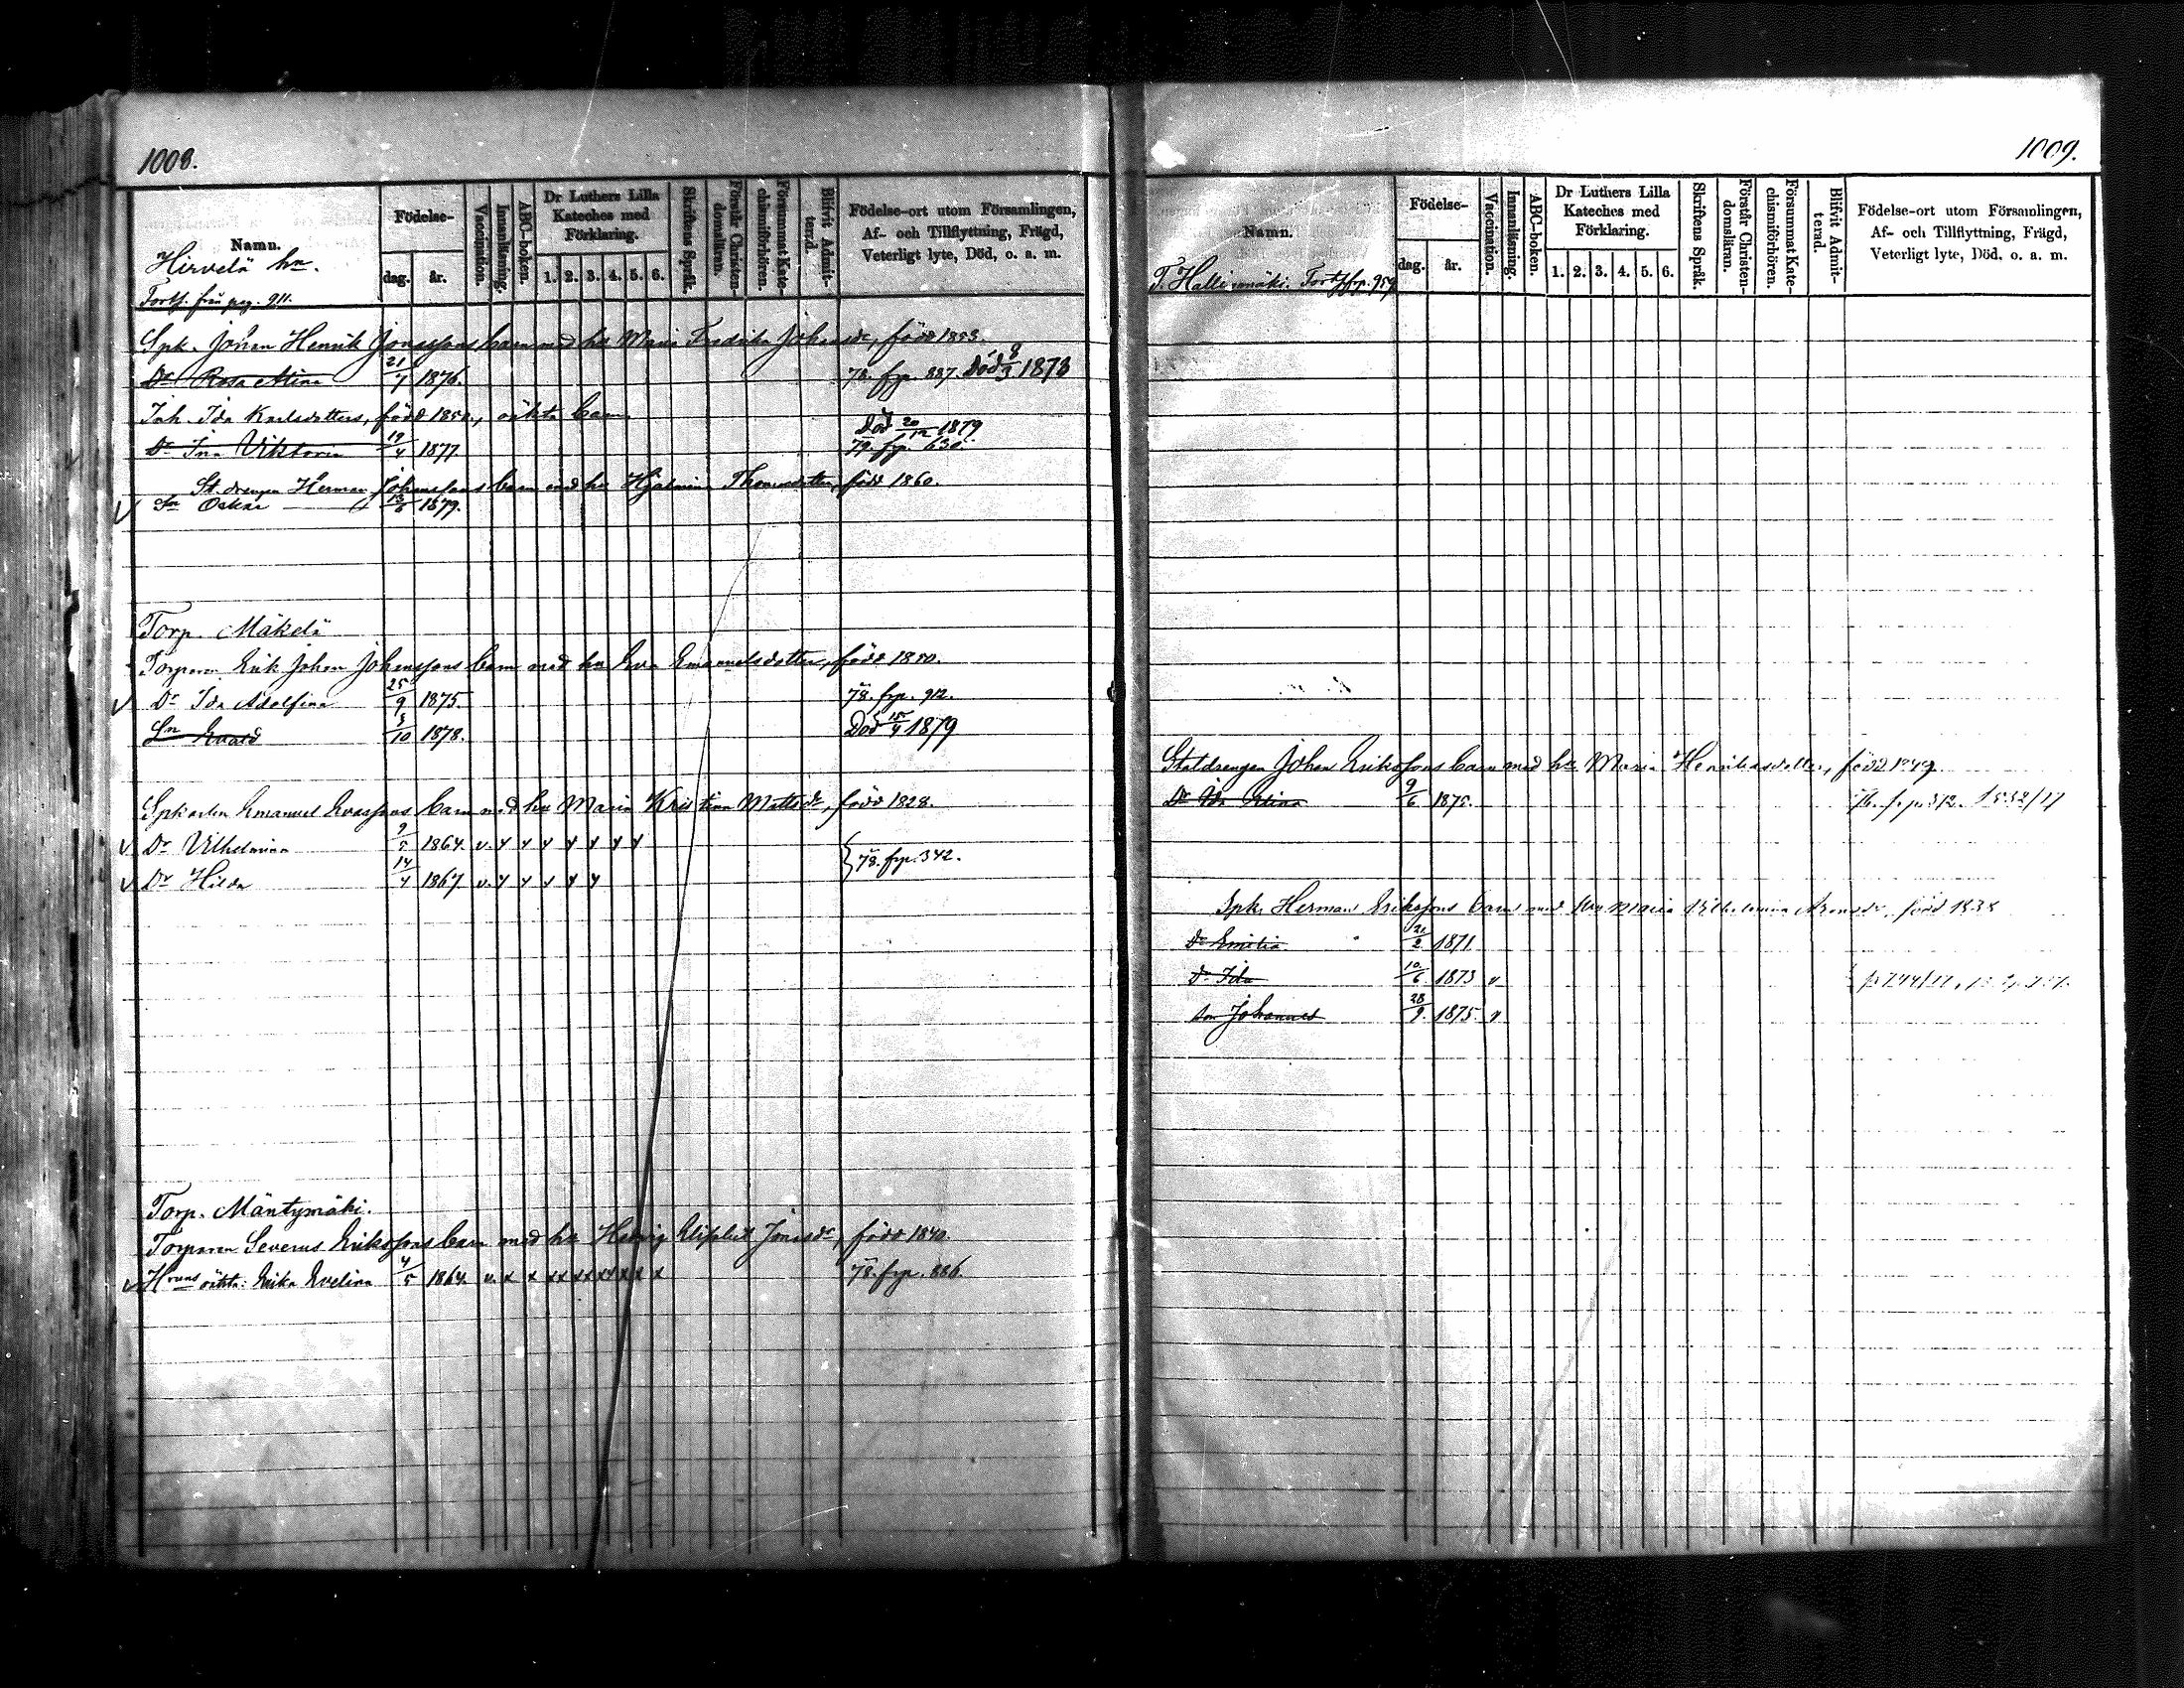 1008.
Namn.
Födelse-
dag. år.
Vaccination.
Innanläsning.
ABC-boken.
Dr Luthers Lilla Kateches med Förklaring.
1. 2. 3. 4. 5. 6.
Skriftens Språk.
Förstår Christendomsläran.
Försummat Katechismiförhören.
Blifvit Admitterad.
Födelse-ort utom Församlingen,
Af- och Tillflyttning, Frägd,
Veterligt lyte, Död, o. a. m.
Hirvelä hn.
Forts. från pag. 911.
Spk. Johan Henrik Jonassons barn med hu Maria Fredrika Johansdr, född 1853.
Dr Rosa Mina 21/7 1876. 78. frp. 887. Död 8/3 1878
Inh. Ida Karlsdotters, född 1850, oäkta barn
Död 20/12 1879
Dr Ina Viktoria 19/4 1877 79. frp. 630.
St. drengen Herman Johanssons barn med hu Hjalmina Thomasdotter, född 1860.
v Sn Oskar 13/6 1879.
Torp. Mäkelä
Torparen Erik Johan Johanssons barn med hu Eva Emanuelsdotter, född 1850.
v Dr Ida Adolfina 25/9 1875 78. frp. 912.
Sn Evald 8/10 1878. Död 15/4 1879
Spkarlen Emanuel Evassons barn med hu Maria Kristina Mattsdr, född 1828.
v Dr Vilhelmina 9/5 1864 v. v v v v v v v
78. frp. 342.
v Dr Hilda 14/4 1867 v. v v v v v
Torp. Mäntymäki.
Torparen Severus Erikssons barn med hu Hedvig Elisabet Jonasdr, född 1840.
v Hruns oäkta: Erika Evelina 4/5 1864 v. x x xx xx xx x x x 78. frp. 886.
1009.
Namn.
Födelse-
dag. år.
Vaccination.
Innanläsning.
ABC-boken.
Dr Luthers Lilla Kateches med Förklaring.
1. 2. 3. 4. 5. 6.
Skriftens Språk.
Förstår Christendomsläran.
Försummat Katechismiförhören.
Blifvit Admitterad.
Födelse-ort utom Församlingen,
Af- och Tillflyttning, Frägd,
Veterligt lyte, Död. o. a. m.
T. Hallinmäki. Forts frp. 959
Staldrengen Johan Erikssons barn med hu Maria Henriksdotter, född 1849.
Dr Ida Elina 9/6 1875. 76. frp. 312.
Spk. Herman Erikssons barn med hu Maria Vilhelmina född 1838
Dr Emilia 21/2 1871
Dr Ida 10/6 1873 v
son Johannes 28/9 1875 v